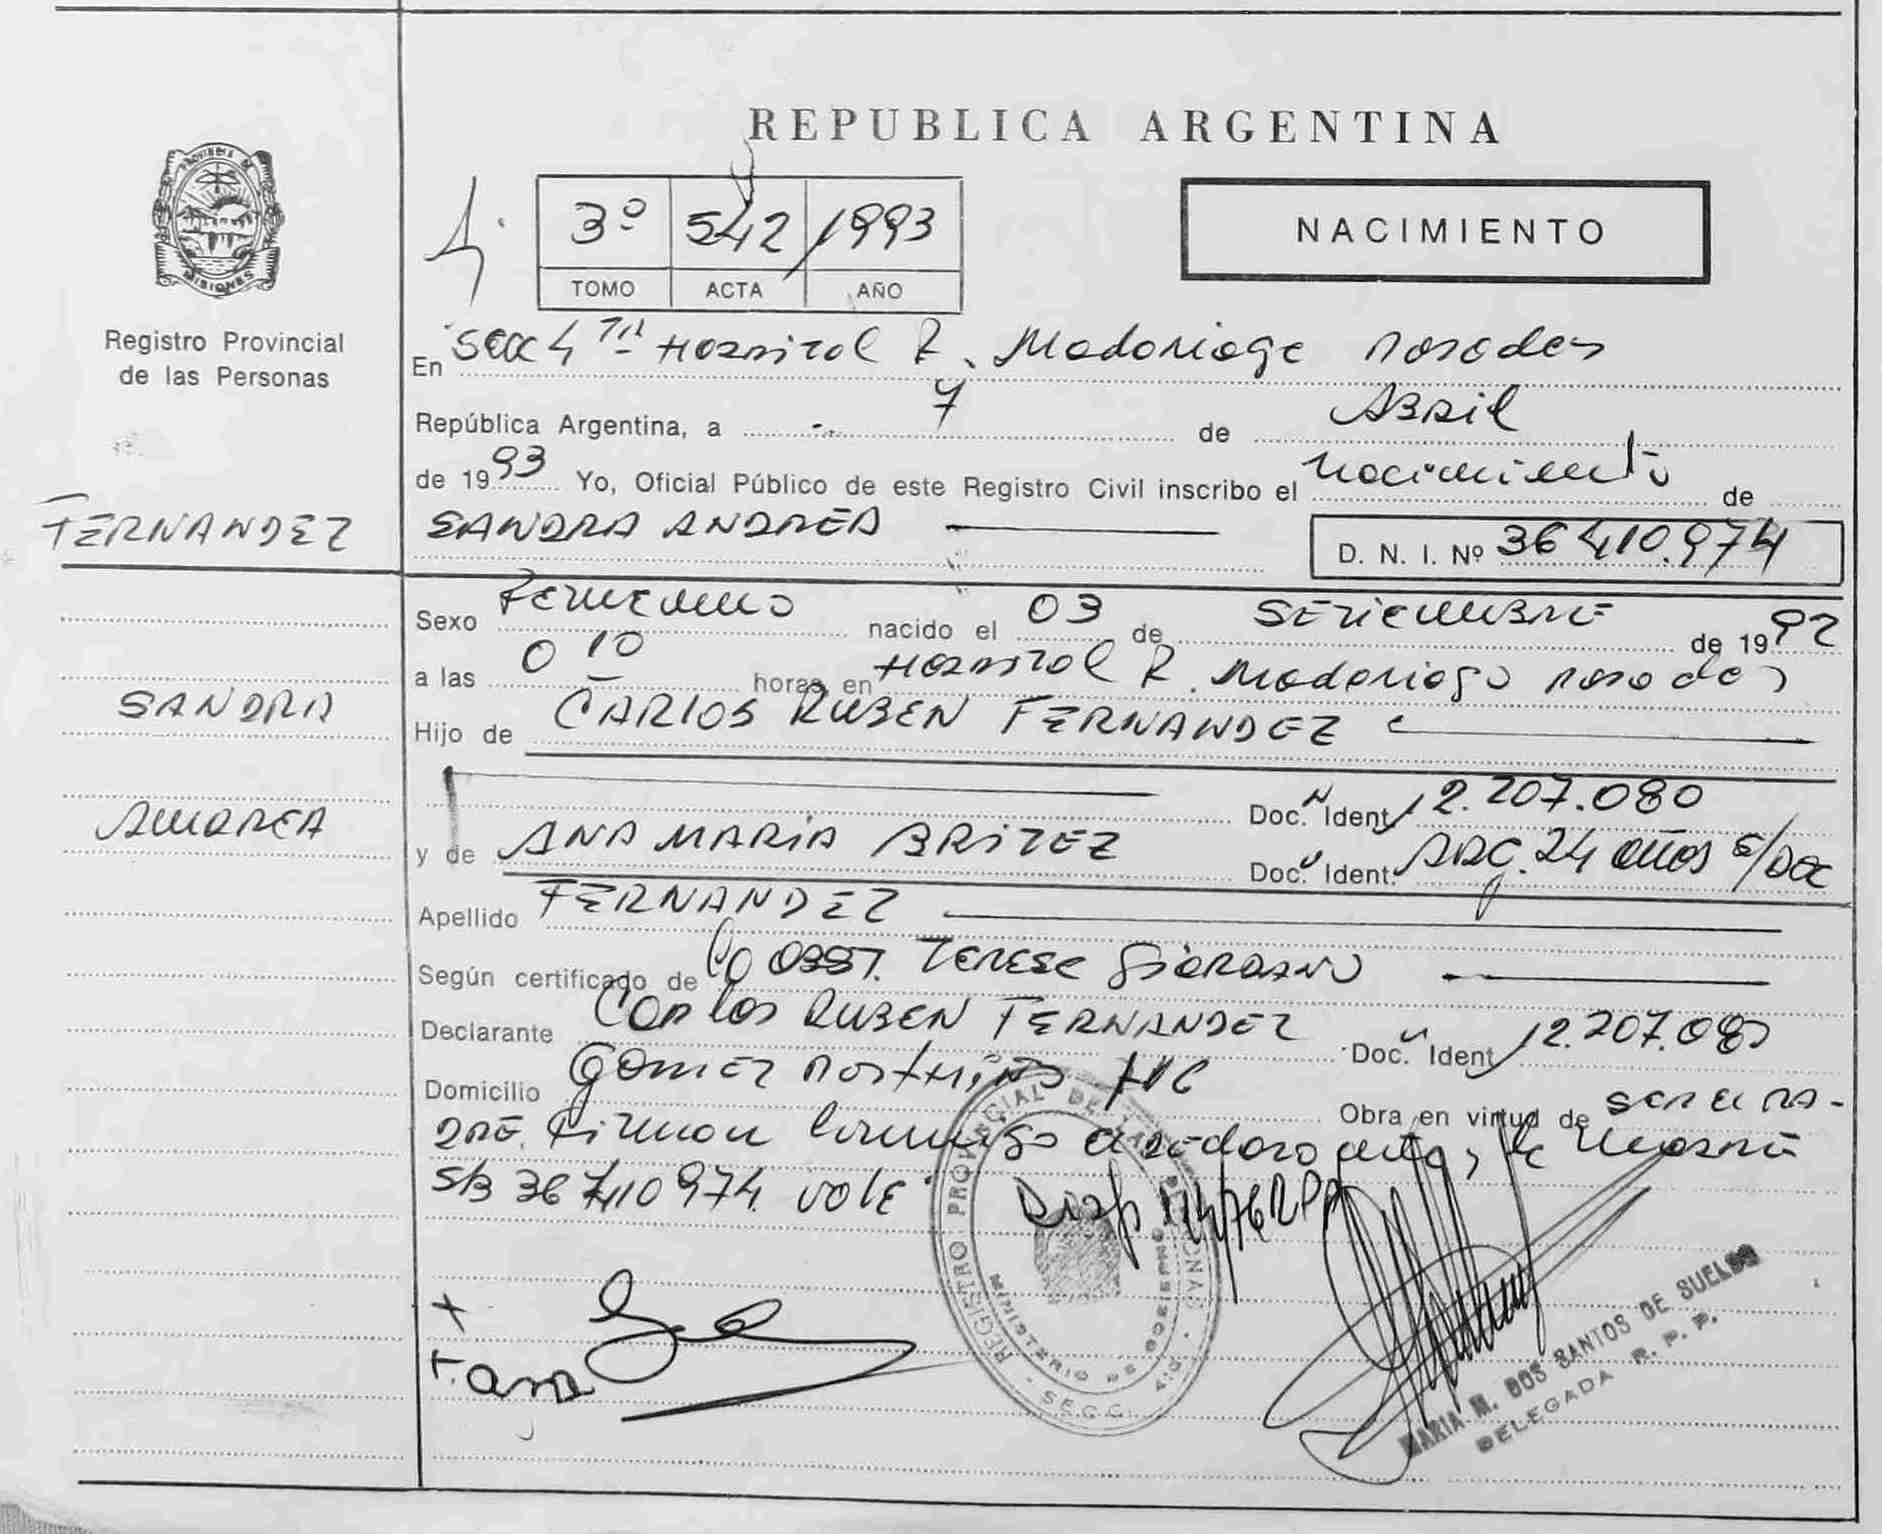 REPUBLICA ARGENTINA
PROVINCIA DE MISIONES
Registro Provincial
de las Personas
3º 542 /1993
TOMO ACTA AÑO
NACIMIENTO
En Secc 4 TA Hospital R. Madariaga Posadas
República Argentina, a 7 de Abril
de 1993 Yo, Oficial Público de este Registro Civil inscribo el nacimiento de
FERNANDEZ
SANDRA ANDREA
D. N. I. Nº 36 410.974
Sexo Femenino nacido el 03 de SETIEMBRE de 1992
a las 0 10 horas, en Hospital R. Madariaga Posadas
SANDRA
Hijo de CARLOS RUBEN FERNANDEZ
Doc. Ident. 12.207.080
ANDREA
y de ANA MARIA BRITEZ Doc. Ident. ARG. 24 años s/Doc
Apellido FERNANDEZ
Según certificado de Obst. TERESA GIORDANO
Declarante Carlos RUBEN FERNANDEZ Doc. Ident 12.207.080
Domicilio GOMEZ PORTIÑO Obra en virtud de SER EL PA-
DRE. Firman conmigo la madre
S/B 36 410 974 VALE
Disp 124/76 RPP
REGISTRO PROVINCIAL DE LAS PERSONAS
MINISTERIO DE GOBIERNO
S.E.C.C.
MARIA M. DOS SANTOS DE SUELDO
DELEGADA R. P. P.